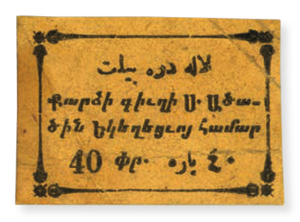 لاله دره بیلت
Քարձի գիւղի Ս. Ածա-
ծին Եկեղեցւոյ համար
40 փր. ٤٠ پاره